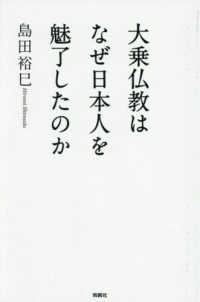 大乗仏教は
なぜ日本人を
魅了したのか
島田裕巳
Hiromi Shimada